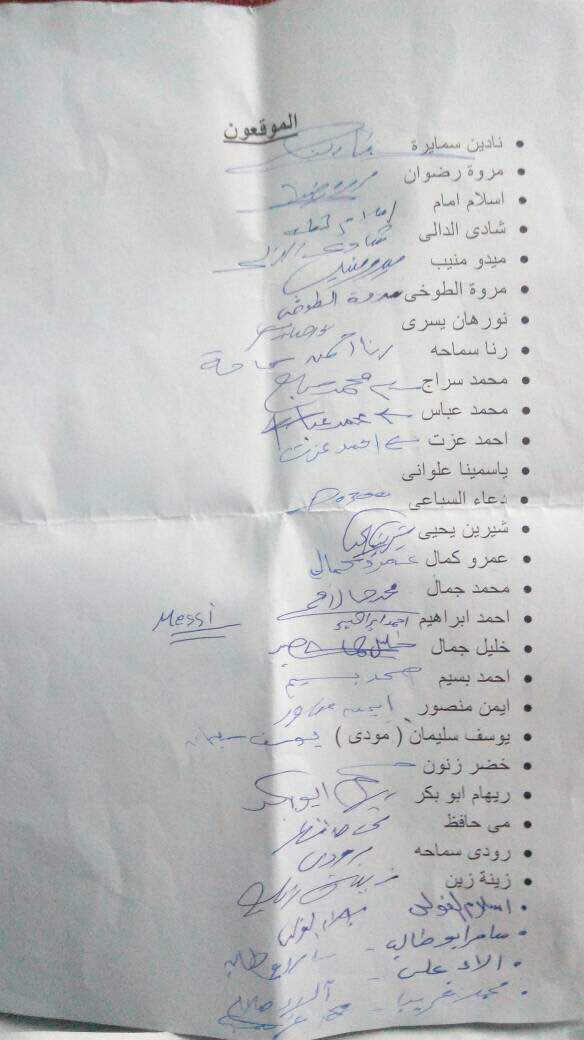 الموقعون
• نادين سمايرة
• مروة رضوان
• اسلام امام
• شادى الدالى شادى الدالى
• ميدو منيب ميدو منيب
• مروة الطوخى مروة الطوخى
• نورهان يسرى
• رنا سماحه رنا احمد سماحة
• محمد سراج محمد سراج
• محمد عباس محمد عباس
• احمد عزت احمد عزت
• ياسمينا علوانى
• دعاء السباعى
• شيرين يحيى
• عمرو كمال عمرو كمال
• محمد جمال محمد جمال
• احمد ابراهيم احمد ابراهيم Messi
• خليل جمال خليل جمال
• احمد بسيم
• ايمن منصور ايمن منصور
• يوسف سليمان ( مودى ) يوسف سليمان
• خضر زنون
• ريهام ابو بكر ريهام ابو بكر
• مى حافظ مى حافظ
• رودى سماحه رودى
• زينة زين
• اسلام الفولى
• سامر ابو طالب
• الاء على
• محمد غريب